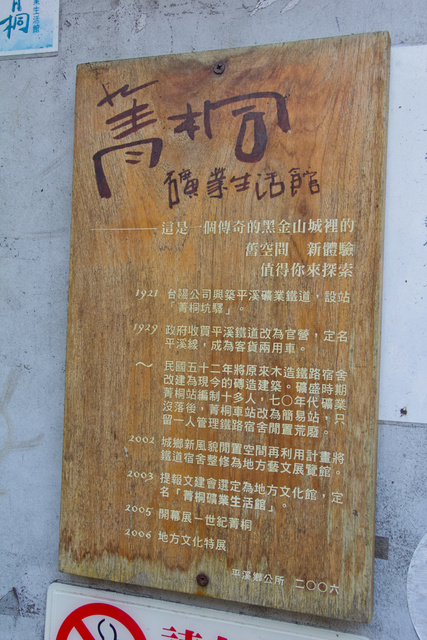 業生活館
桐
菁桐
礦業生活館
這是一個傳奇的黑金山城裡的
舊空間 新體驗
值得你來探索
1921 台陽公司興築平溪礦業鐵道，設站
「菁桐坑驛」。
1929 政府收買平溪鐵道改為官營，定名
平溪線，成為客貨兩用車。
～ 民國五十二年將原來木造鐵路宿舍
改建為現今的磚造建築。礦盛時期
菁桐站編制十多人，七〇年代礦業
沒落後，菁桐車站改為簡易站，只
留一人管理鐵路宿舍閒置荒廢。
2002 城鄉新風貌閒置空間再利用計畫將
鐵道宿舍整修為地方藝文展覽館。
2003 提報文建會選定為地方文化館，定
名「菁桐礦業生活館」。
2005 開幕展－世紀菁桐
2006 地方文化特展
平溪鄉公所 二〇〇六